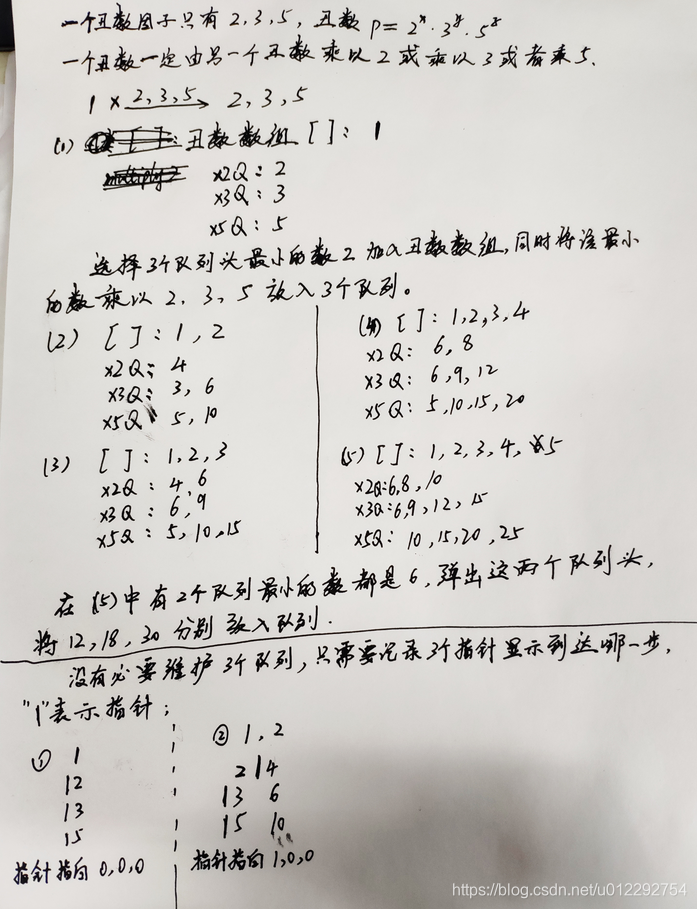 一个丑数因子只有 2,3,5, 丑数 P=2ˣ·3ʸ·5ᶻ
一个丑数一定由另一个丑数乘以2或乘以3或者乘5.
1 ×2,3,5→ 2,3,5
(1) 丑数数组 [ ]: 1
x2Q: 2
x3Q: 3
x5Q: 5
选择3个队列头最小的数2加入丑数数组,同时将该最小
的数乘以 2, 3, 5 放入3个队列。
(2) [ ]: 1, 2
x2Q: 4
x3Q: 3, 6
x5Q: 5, 10
(3) [ ]: 1,2,3
x2Q: 4,6
x3Q: 6,9
x5Q: 5,10,15
(4) [ ]: 1,2,3,4
x2Q: 6,8
x3Q: 6,9,12
x5Q: 5,10,15,20
(5) [ ]: 1,2,3,4,5
x2Q:6,8,10
x3Q:6,9,12,15
x5Q: 10,15,20,25
在(5)中有2个队列最小的数都是6,弹出这两个队列头,
将12,18,30 分别放入队列.
没有必要维护3个队列,只需要记录3个指针显示到达哪一步,
"|"表示指针;
① 1
|2
|3
|5
指针指向 0,0,0
② 1, 2
2|4
|3 6
|5 10
指针指向 1,0,0
https://blog.csdn.net/u012292754